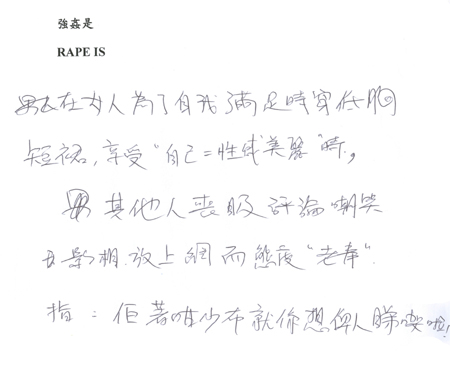 強姦是
RAPE IS
在女人為了自我滿足時穿低胸
短裙，享受“自己=性感美麗”時，
其他人喪眼評論嘲笑
影相放上網而態度“老奉”
指：佢著咁少布就係想俾人睇㗎啦！